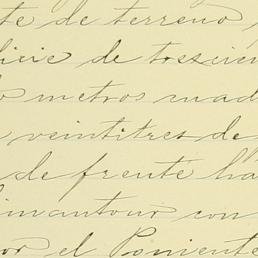 te de terreno
licie de trescien
metros cuad
veintitres de
de frente ha
limantour con
or el Poniente